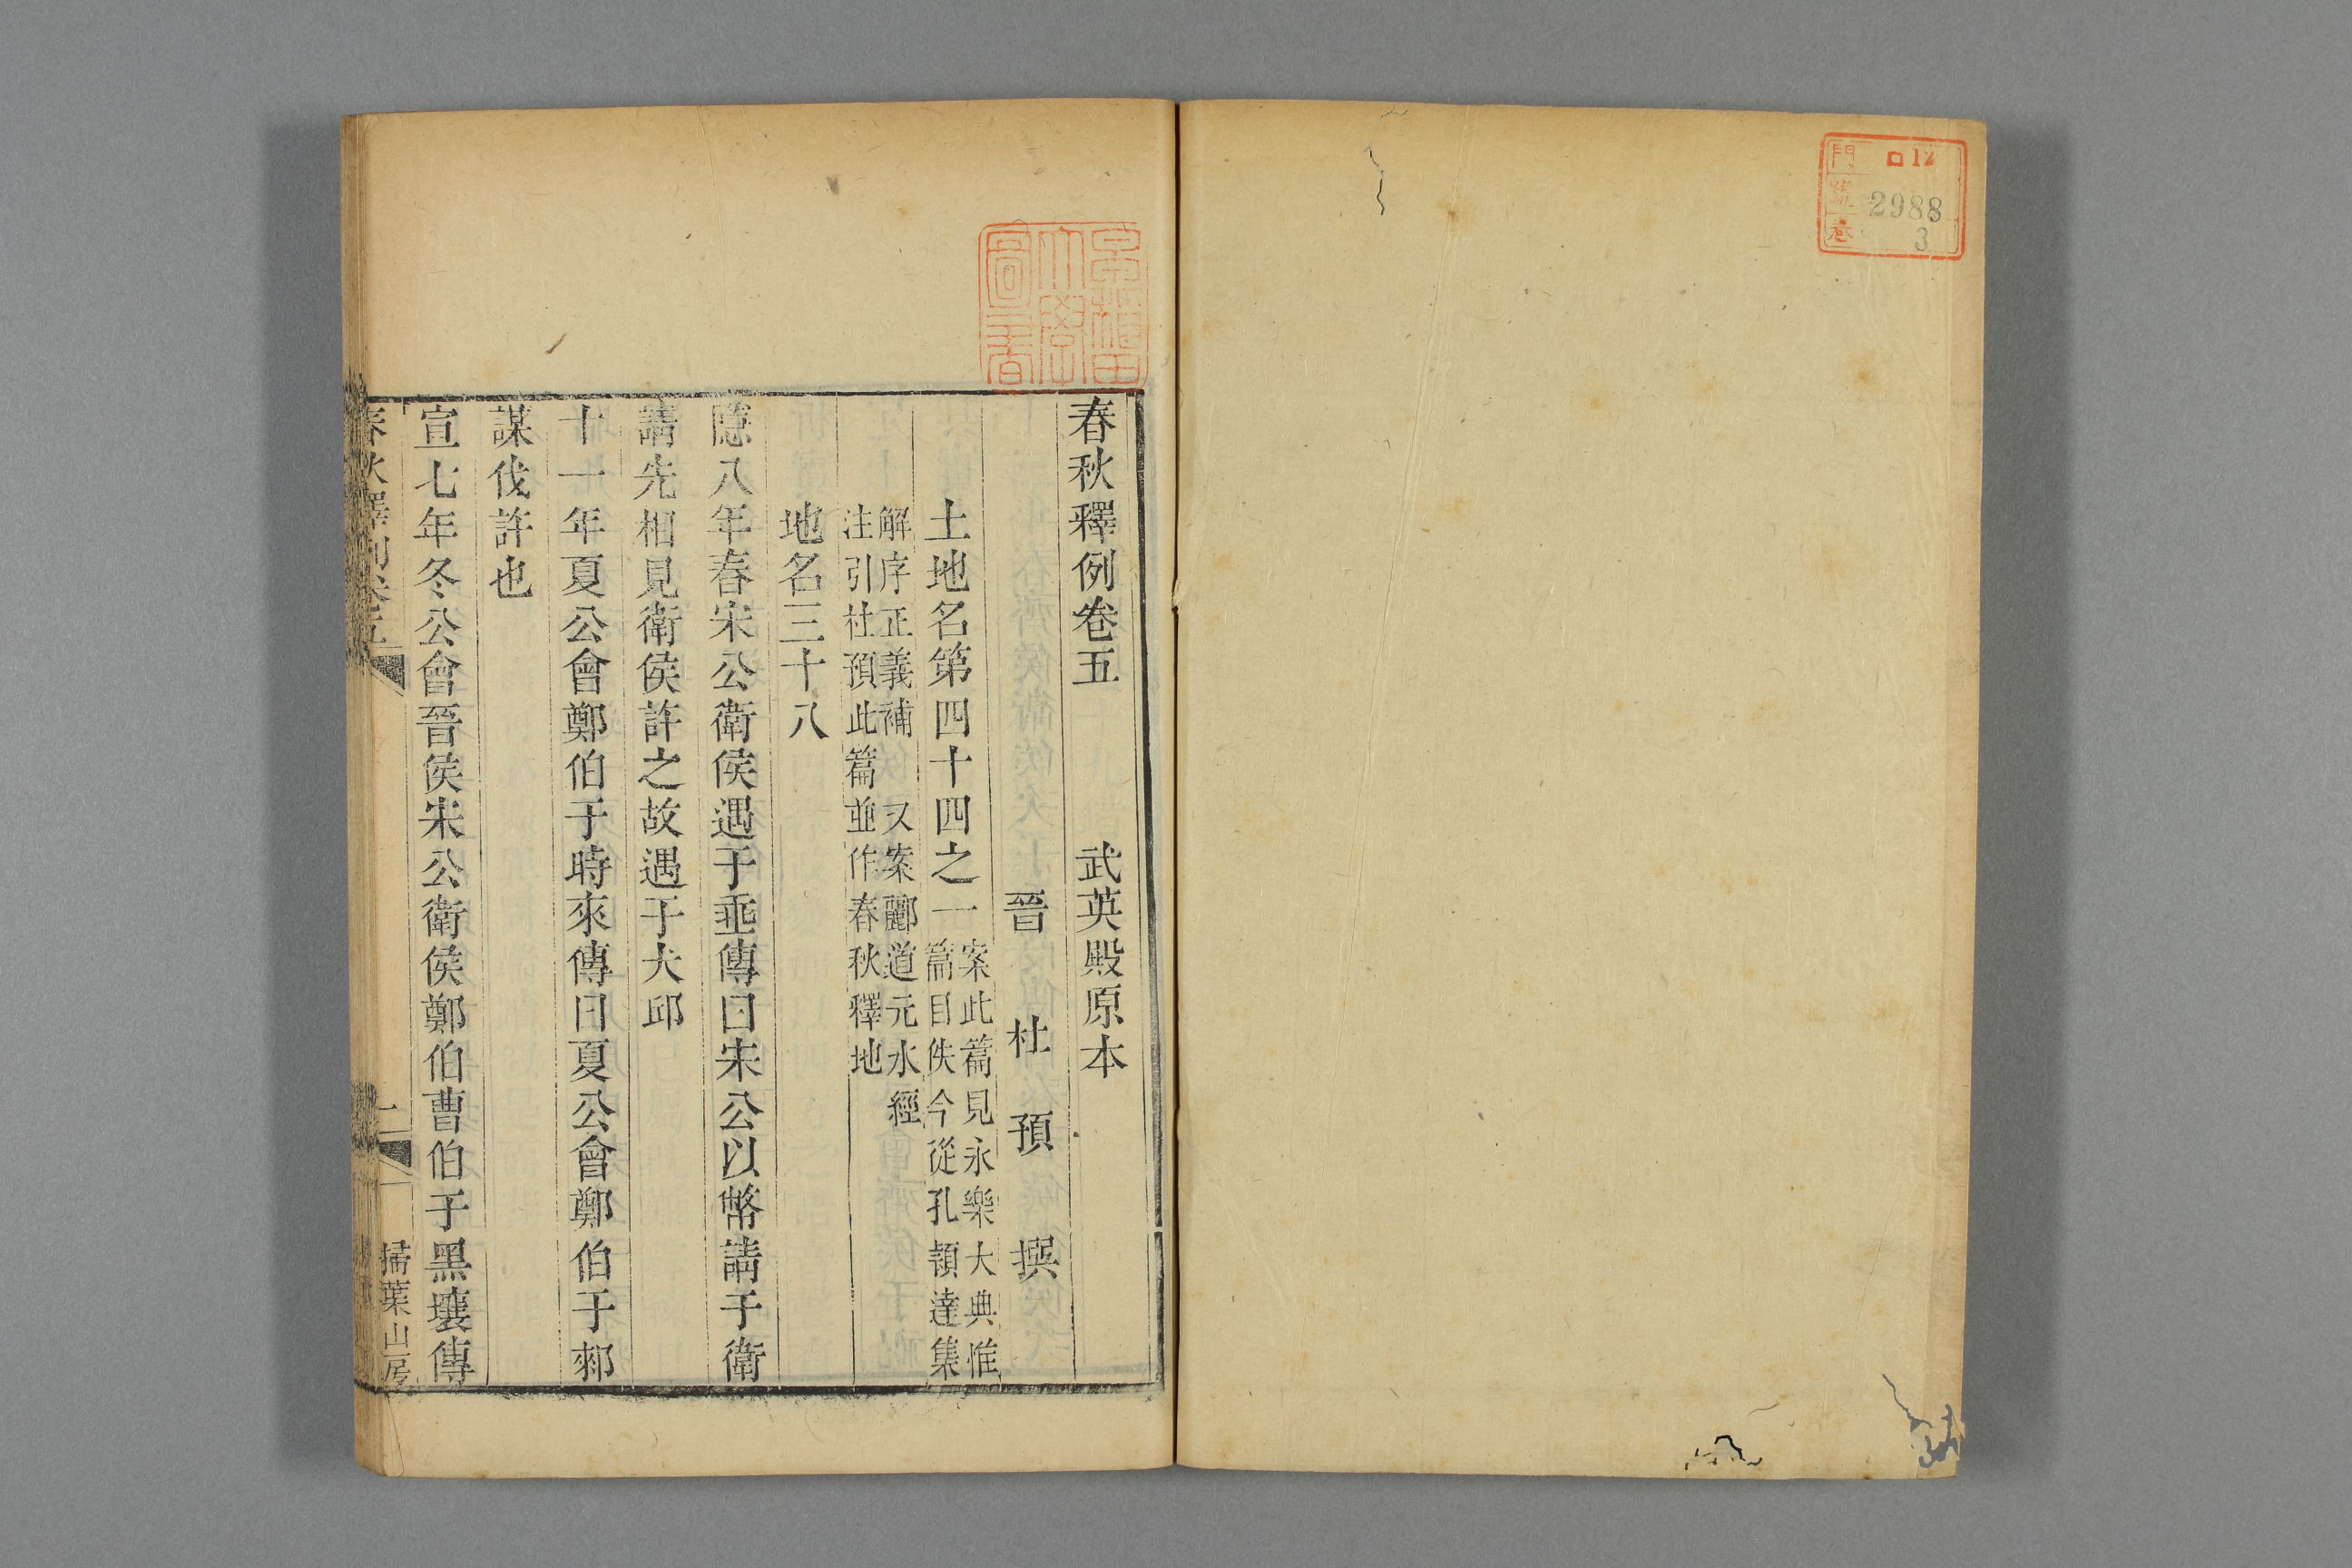 門 口12
號 2988
卷 3
早稻田大學圖書
春秋釋例卷五 武英殿原本
晉 杜 預 撰
土地名第四十四之一 案此篇見永樂大典惟
篇目佚今從孔穎達集
解序正義補 又案酈道元水經
注引杜預此篇並作春秋釋地
地名三十八
隱八年春宋公衛侯遇于垂傳曰宋公以幣請于衛
請先相見衛侯許之故遇于犬邱
十一年夏公會鄭伯于時來傳曰夏公會鄭伯于郲
謀伐許也
宣七年冬公會晉侯宋公衛侯鄭伯曹伯于黑壤傳
春秋釋例卷五
一 掃葉山房